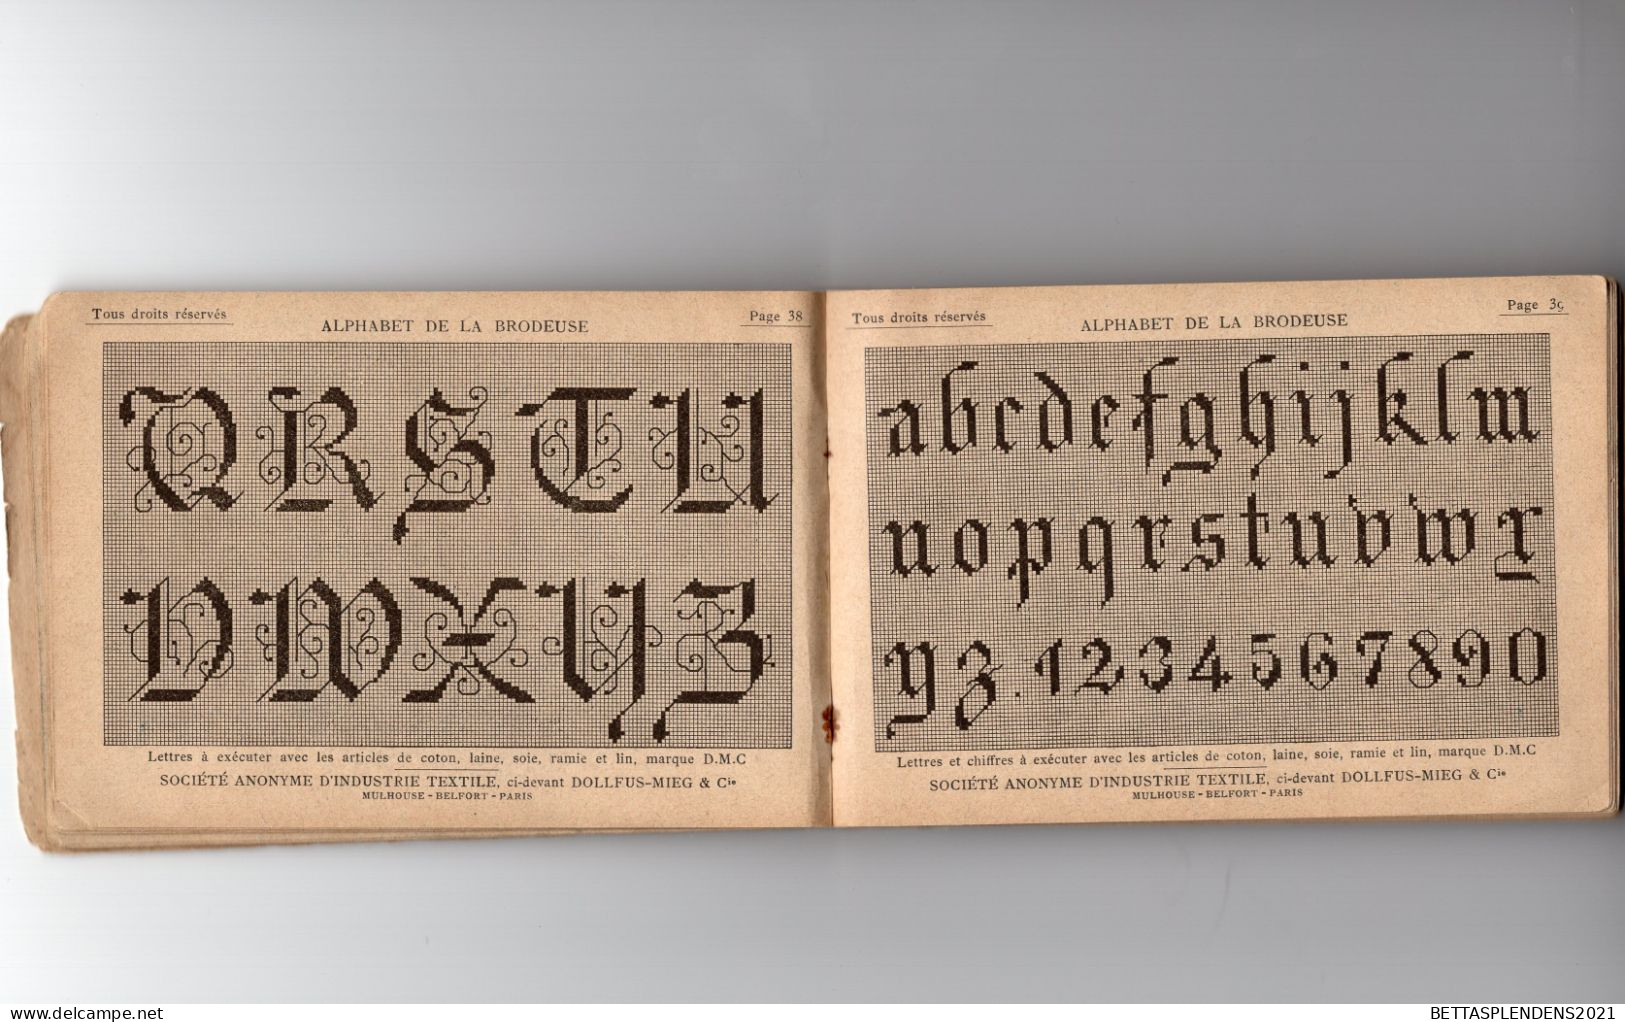 Tous droits réservés
Page 38
ALPHABET DE LA BRODEUSE
Q R S T U
V W X Y Z
Lettres à exécuter avec les articles de coton, laine, soie, ramie et lin, marque D.M.C
SOCIÉTÉ ANONYME D'INDUSTRIE TEXTILE, ci-devant DOLLFUS-MIEG & Cie
MULHOUSE - BELFORT - PARIS
Tous droits réservés
Page 39
ALPHABET DE LA BRODEUSE
a b c d e f g h i j k l m
n o p q r s t u v w x
y z . 1 2 3 4 5 6 7 8 9 0
Lettres et chiffres à exécuter avec les articles de coton, laine, soie, ramie et lin, marque D.M.C
SOCIÉTÉ ANONYME D'INDUSTRIE TEXTILE, ci-devant DOLLFUS-MIEG & Cie
MULHOUSE - BELFORT - PARIS
www.delcampe.net
BETTASPLENDENS2021